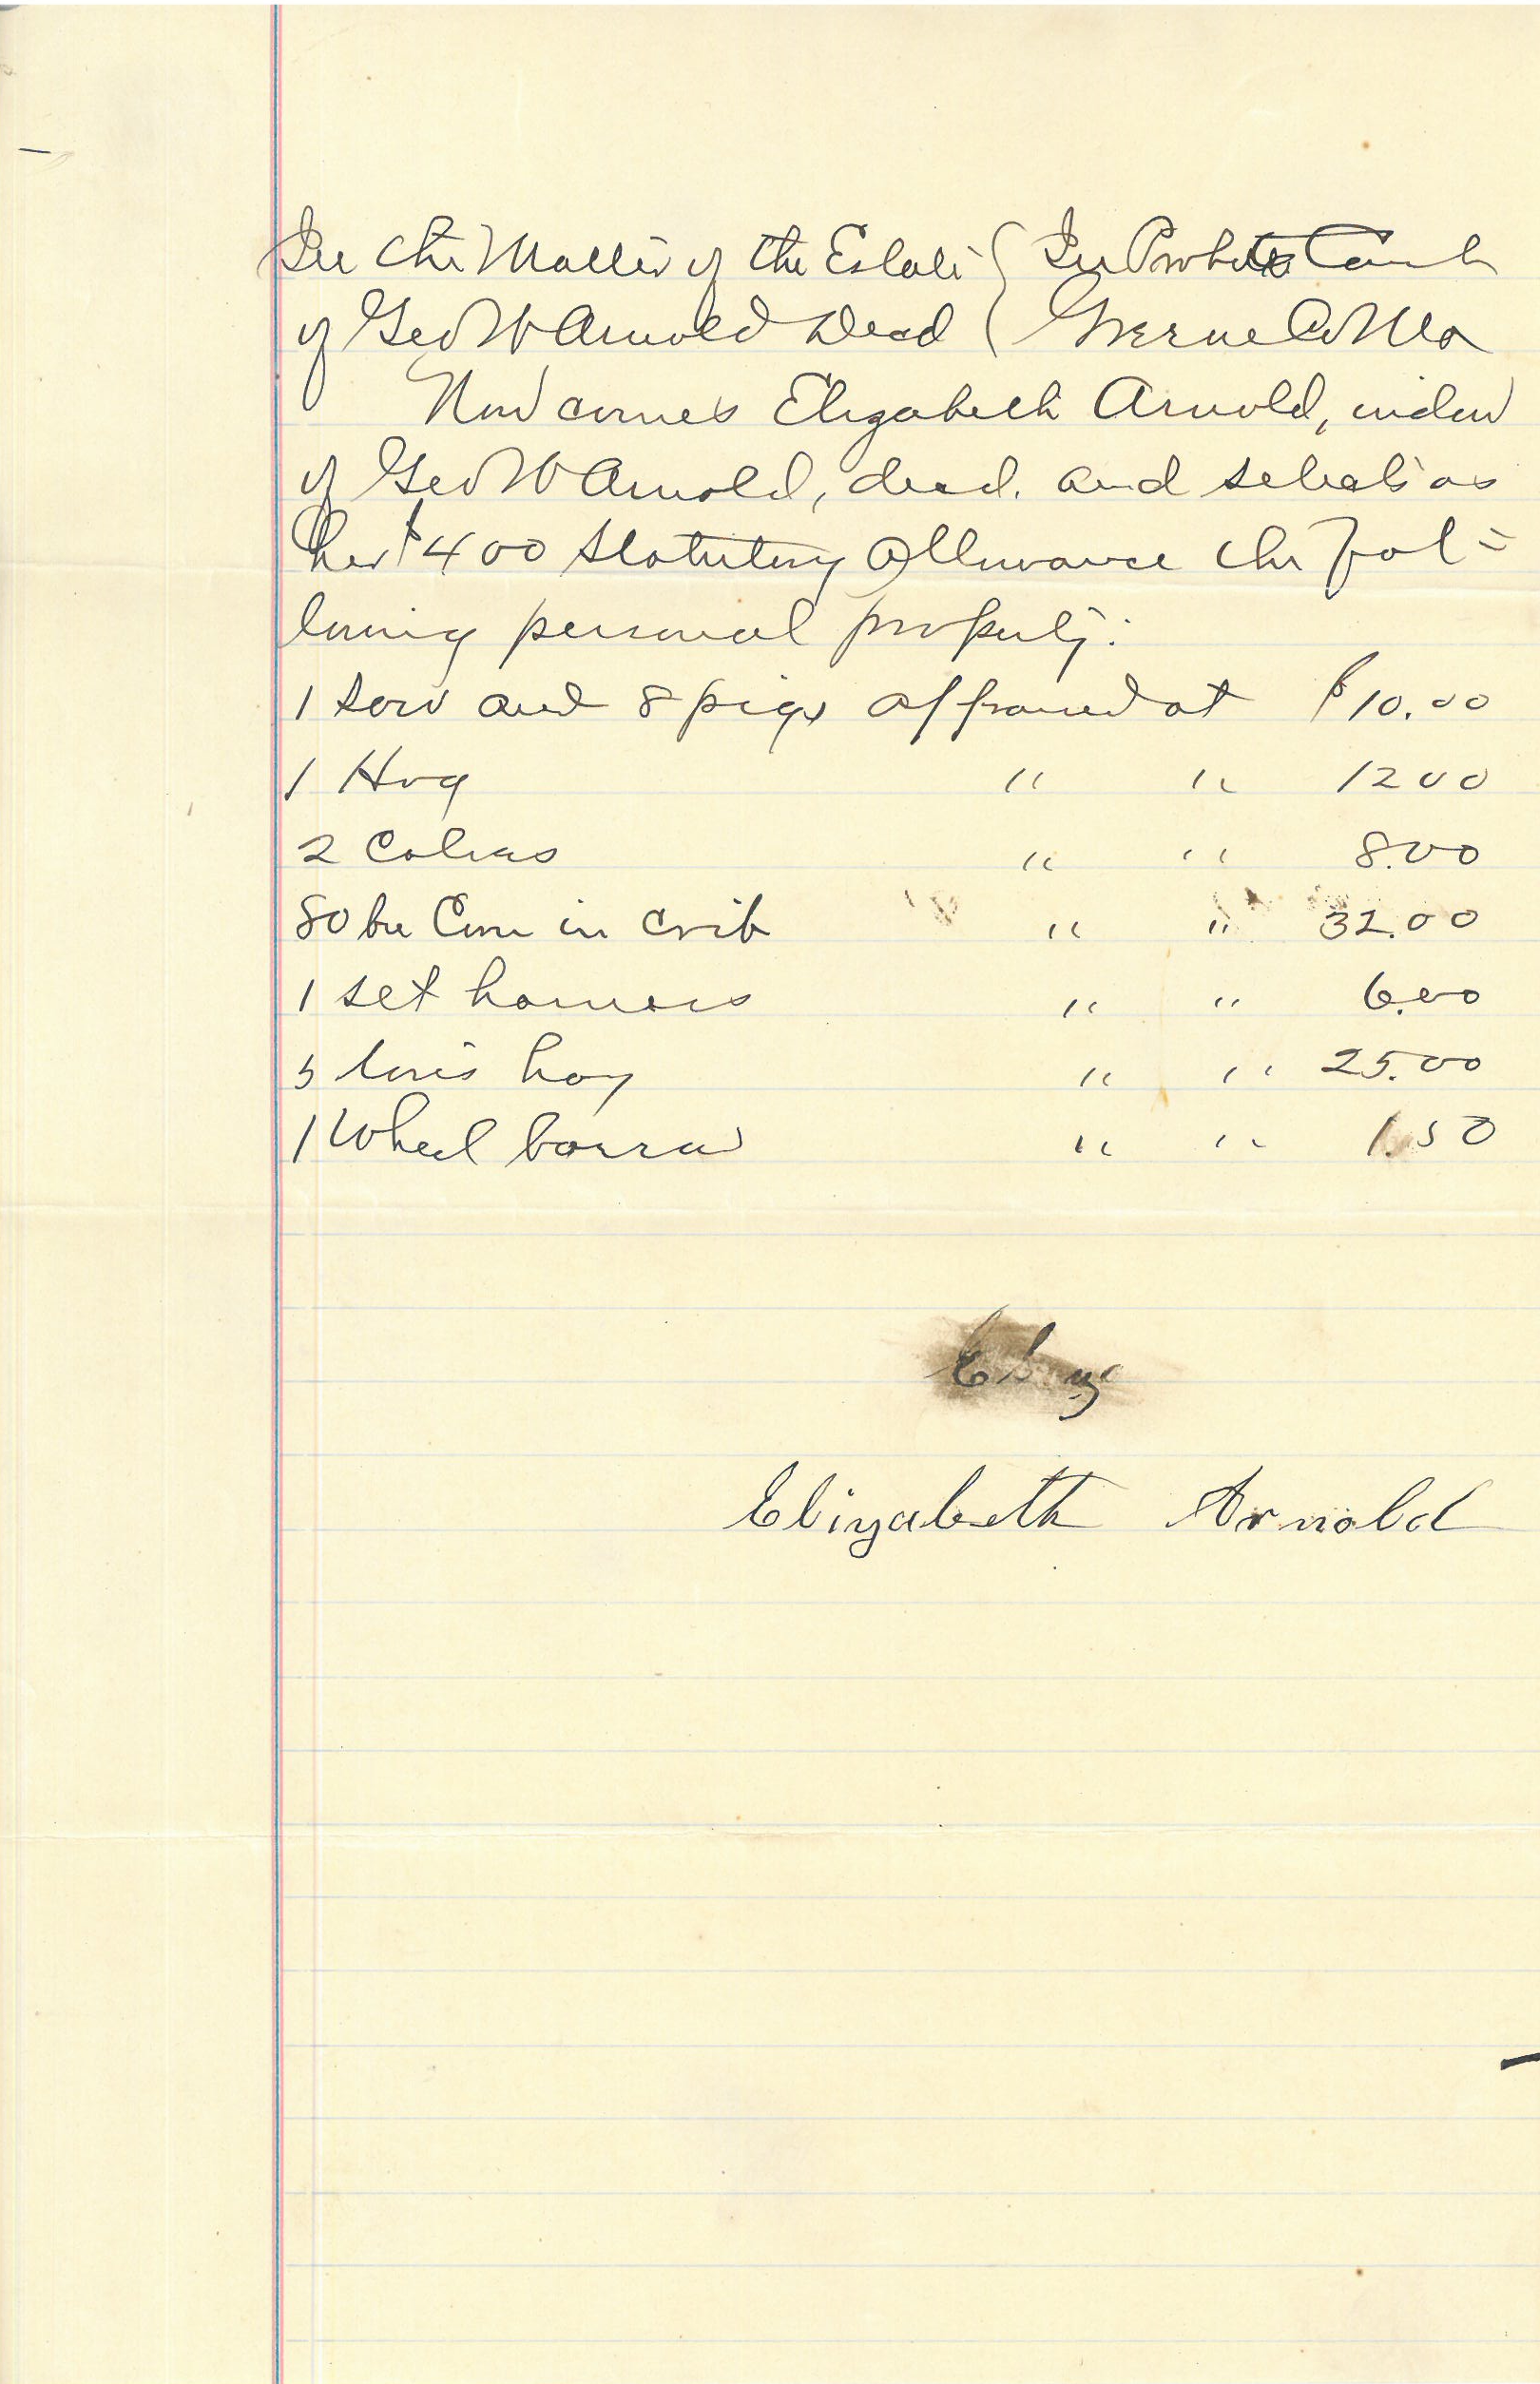 In the Matter of the Estate ( In Probate Court
of Geo W Arnold Decd ( Greene Co Mo
Now comes Elizabeth Arnold, widow
of Geo W Arnold, decd. and selects as
her $400 Statutory Allowance the fol=
lowing personal property:
1 sow and 8 pigs appraised at $10.00
1 Hog " " 1200
2 Calves " " 8.00
80 bu Corn in crib " " 32.00
1 set harness " " 6.00
5 tons hay " " 25.00
1 Wheel barrow " " 1.50
Elizabeth Arnold